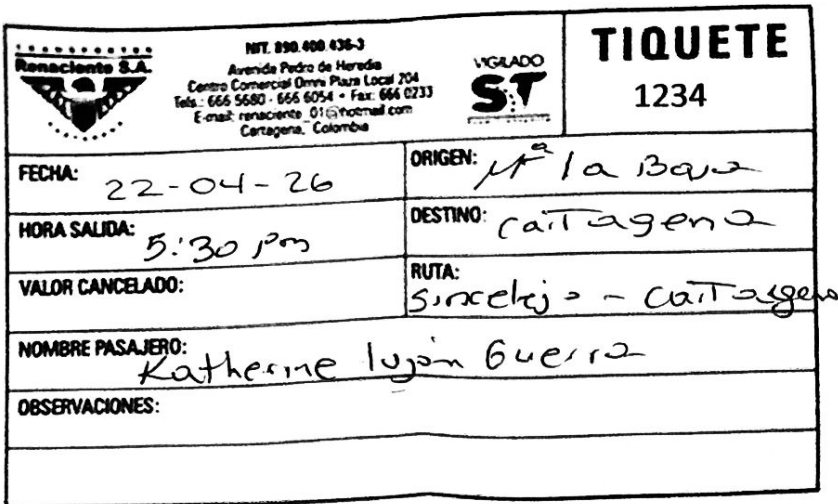 Renaciente S.A.
NIT. 890.400.436-3
Avenida Pedro de Heredia
Centro Comercial Omni Plaza Local 204
Tels.: 666 5680 - 666 6054 • Fax: 666 0233
E-mail: renaciente_01@hotmail.com
Cartagena, Colombia
VIGILADO
ST
TIQUETE
1234
FECHA: 22-04-26
ORIGEN: Mª la Baja
HORA SALIDA: 5:30 pm
DESTINO: Cartagena
VALOR CANCELADO:
RUTA: Sincelejo - Cartagena
NOMBRE PASAJERO: Katherine lujan Guerra
OBSERVACIONES: